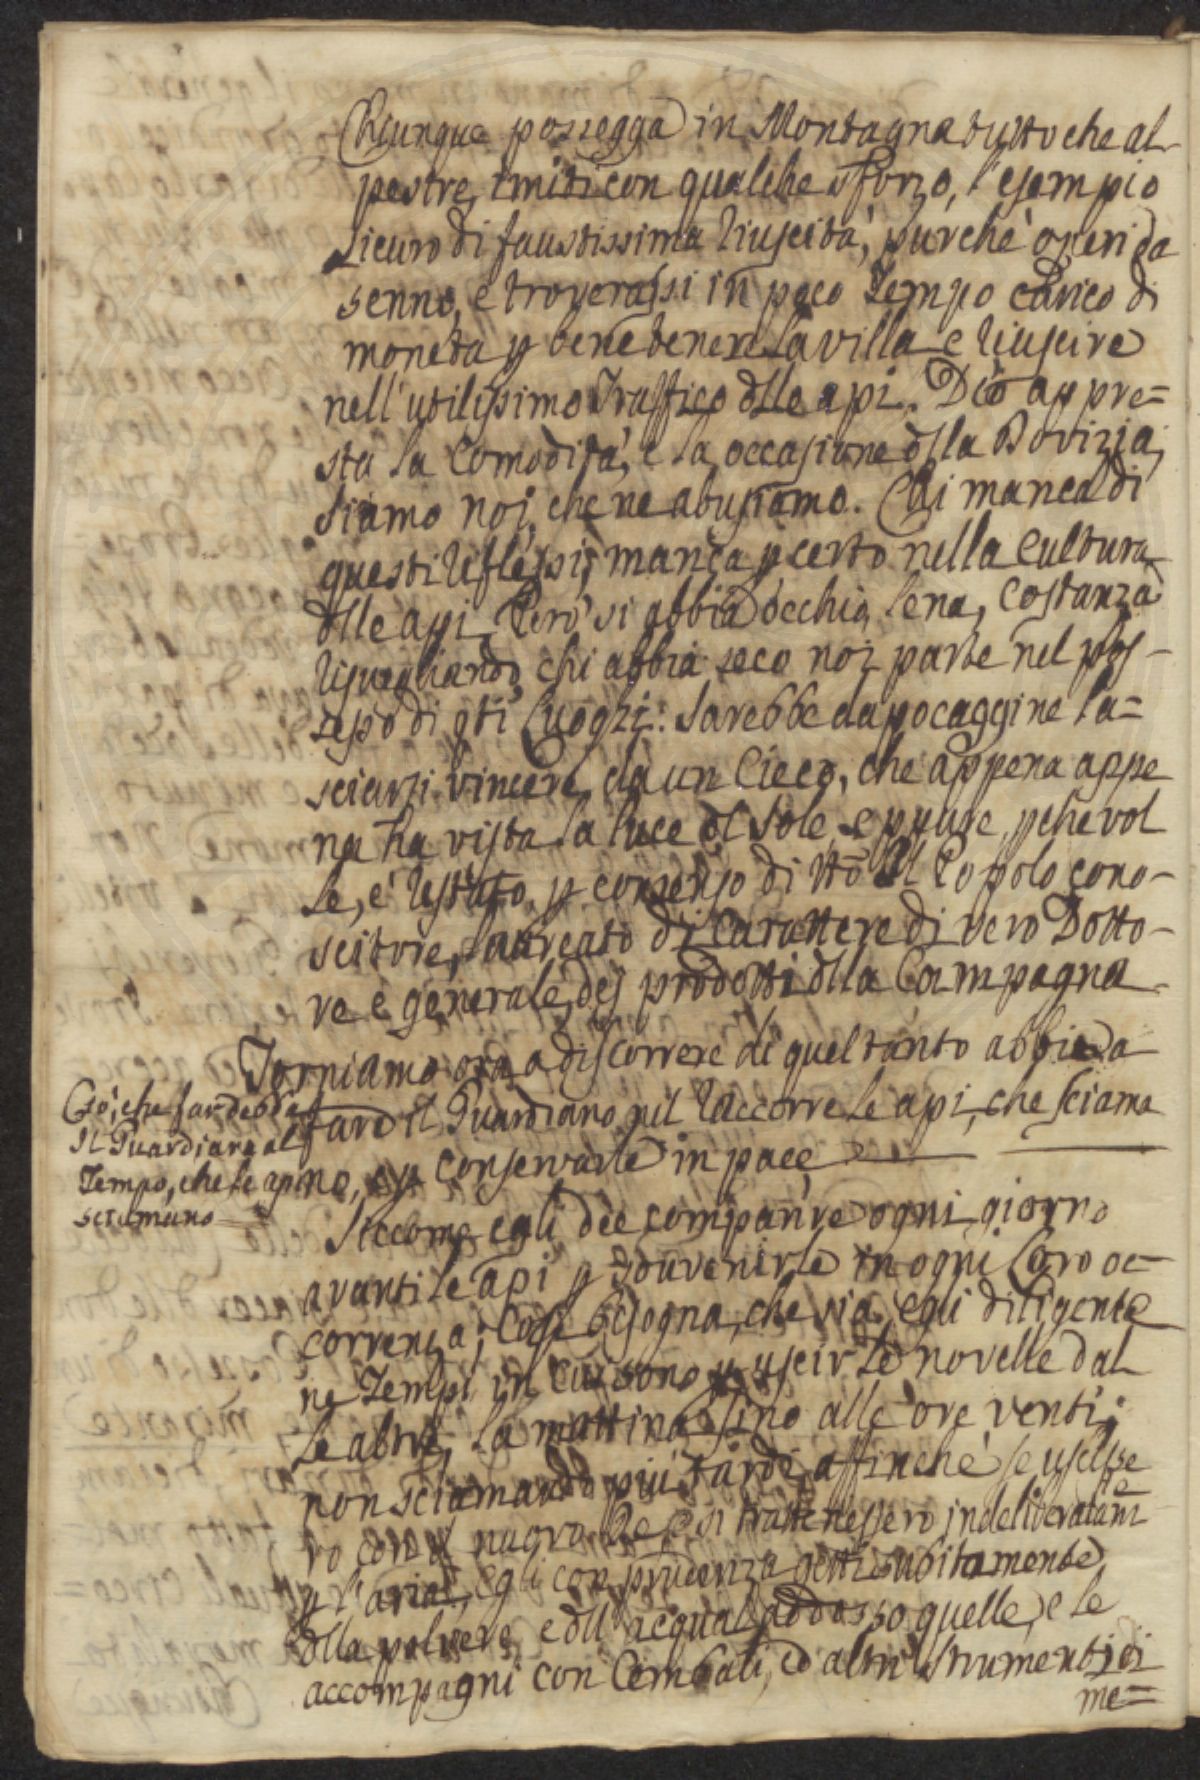 Chiunque possegga in Montagna tutto che al-
pestre, imiti con qualche sforzo, l'esempio
sicuro di faustissima riuscita, purchè operi da
senno, e troverassi in poco tempo carico di
moneta p bene tenere la villa e riuscire
nell'utilissimo traffico dlle api. Dio appre=
sta la comodità, e la occasione dlla Dovizia;
siamo noj, che ne abusiamo. Chi manca di
questi riflessi, manca p certo nella cultura
dlle api. Però si abbia occhio, lena, costanza
risvegliando, chi abbia seco noi parte nel pos-
sesso di qti luoghi. Sarebbe dapocaggine la=
sciarsi vincere da un Cieco, che appena appe
na ha vista la luce dl sole e ppure, pche vol
le, è restato p consenso di tto il Popolo cono-
scitore, laureato di Carattere di vero Dotto-
re e generale dej prodotti dlla Campagna.
Torniamo ora a discorrere di quel tanto abbia da
fare il Guardiano nel raccorre le api, che sciama
no, e p conservarle in pace
Ciò, che far debba
il Guardiano al
tempo, che le api
sciamano
Siccome egli dee comparire ogni giorno
avanti le api p sovvenirle in ogni loro oc=
correnza; così bisogna, che sia egli diligente
ne tempi in cui sono p uscir le novelle dal
le altre, la mattina sino alle ore venti;
non sciamando più tardi, affinchè se uscisse
ro con il nuovo Re, e si trattenessero indeliberatamte
p l'aria, egli con prudenza getti subitamente
dlla polvere, e dll'acqua addosso quelle, e le
accompagni con Cembali, ed altri strumenti di
me=